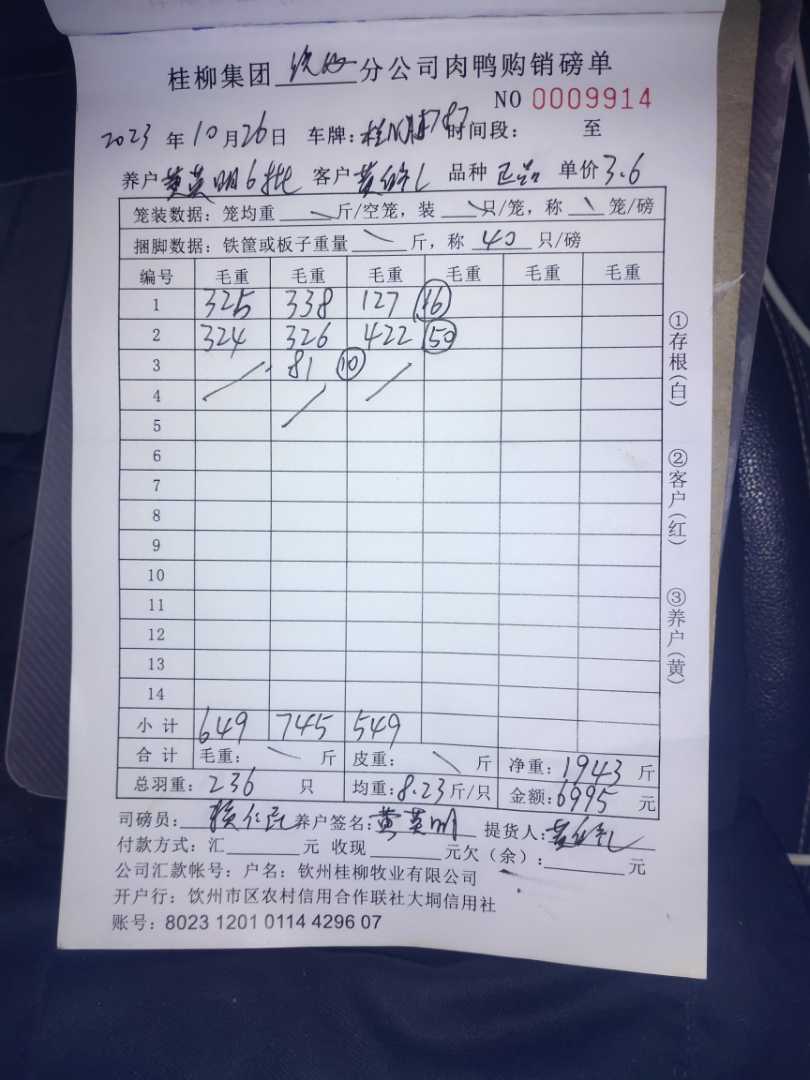 桂柳集团 钦州 分公司肉鸭购销磅单
NO 0009914
2023 年 10 月 26 日 车牌: 时间段: 至
养户 黄英明6批 客户 黄 品种 正品 单价 3.6
笼装数据: 笼均重 斤/空笼, 装 只/笼, 称 笼/磅
捆脚数据: 铁筐或板子重量 斤, 称 40 只/磅
编号 毛重 毛重 毛重 毛重 毛重 毛重
1 325 338 127 16
2 324 326 422 50
3 81 10
4
5
6
7
8
9
10
11
12
13
14
小计 649 745 549
合计 毛重: 斤 皮重: 斤 净重: 1943 斤
总羽重: 236 只 均重: 8.23 斤/只 金额: 6995 元
司磅员: 养户签名: 黄英明 提货人: 黄
付款方式: 汇 元 收现 元欠(余): 元
公司汇款帐号: 户名: 钦州桂柳牧业有限公司
开户行: 饮州市区农村信用合作联社大垌信用社
账号: 8023 1201 0114 4296 07
①存根(白)
②客户(红)
③养户(黄)